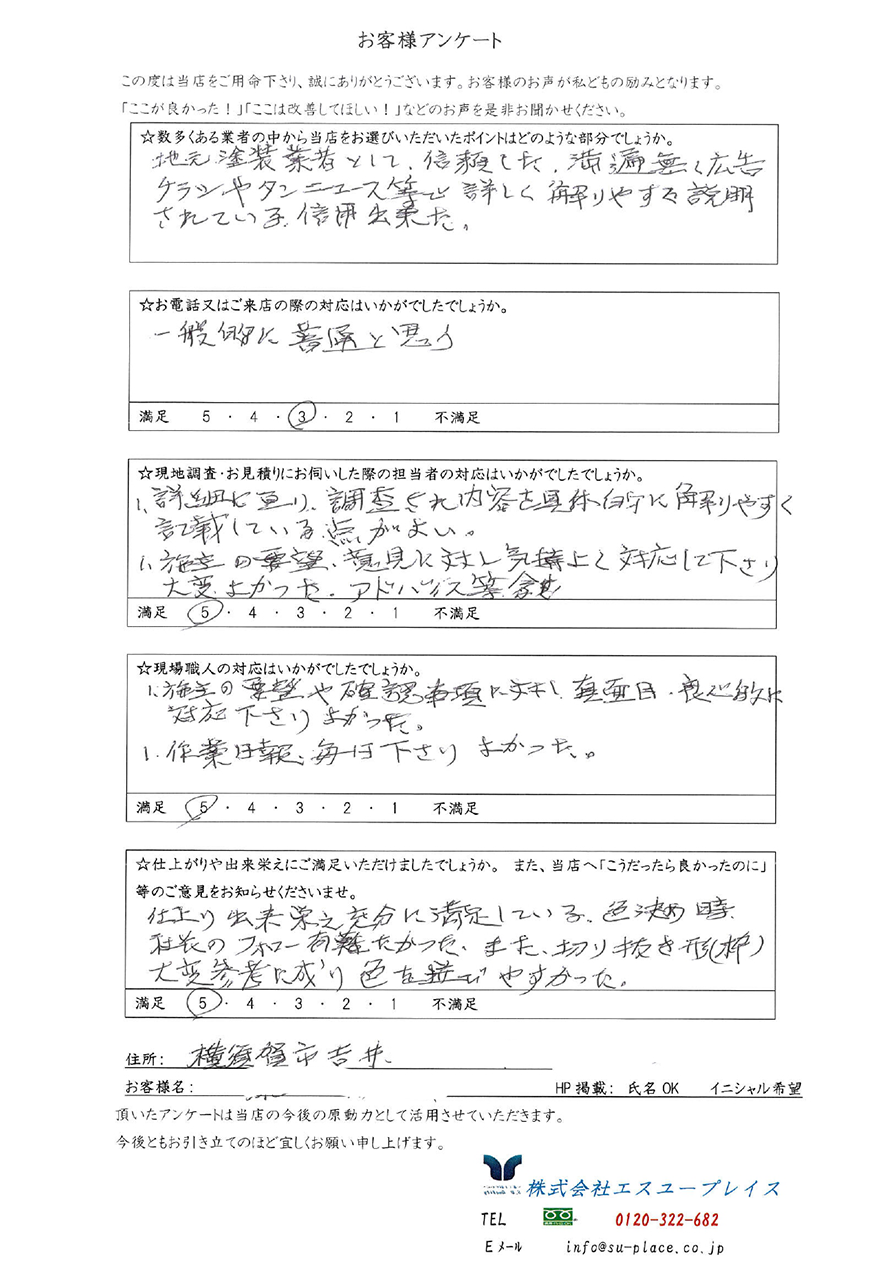 お客様アンケート
この度は当店をご用命下さり、誠にありがとうございます。お客様のお声が私どもの励みとなります。
「ここが良かった！」「ここは改善してほしい！」などのお声を是非お聞かせください。
☆数多くある業者の中から当店をお選びいただいたポイントはどのような部分でしょうか。
地元塗装業者として、信頼した、満遍無く広告
チラシやタンニュース等で詳しく解りやすく説明
されている、信用出来た。
☆お電話又はご来店の際の対応はいかがでしたでしょうか。
一般的に普通と思う
満足 5 ・ 4 ・ 3 ・ 2 ・ 1 不満足
☆現地調査・お見積りにお伺いした際の担当者の対応はいかがでしたでしょうか。
1、詳細に亘り、調査された内容を具体的に解りやすく
記載している点がよい。
1、施主の要望、意見に対し気持よく対応して下さり
大変よかった。アドバイス等含む
満足 5 ・ 4 ・ 3 ・ 2 ・ 1 不満足
☆現場職人の対応はいかがでしたでしょうか。
1、施主の要望や確認事項に対し、真面目、良心的に
対応下さりよかった。
1、作業日報、毎日下さりよかった。
満足 5 ・ 4 ・ 3 ・ 2 ・ 1 不満足
☆仕上がりや出来栄えにご満足いただけましたでしょうか。 また、当店へ「こうだったら良かったのに」
等のご意見をお知らせくださいませ。
仕上り出来栄え充分に満足している、色決め時、
社長のフォロー有難たかった、また、切り抜き形(枠)
大変参考に成り色を選びやすかった。
満足 5 ・ 4 ・ 3 ・ 2 ・ 1 不満足
住所： 横須賀市吉井
お客様名： HP掲載： 氏名OK イニシャル希望
頂いたアンケートは当店の今後の原動力として活用させていただきます。
今後ともお引き立てのほど宜しくお願い申し上げます。
株式会社エスユープレイス
TEL 0120-322-682
Eメール info@su-place.co.jp